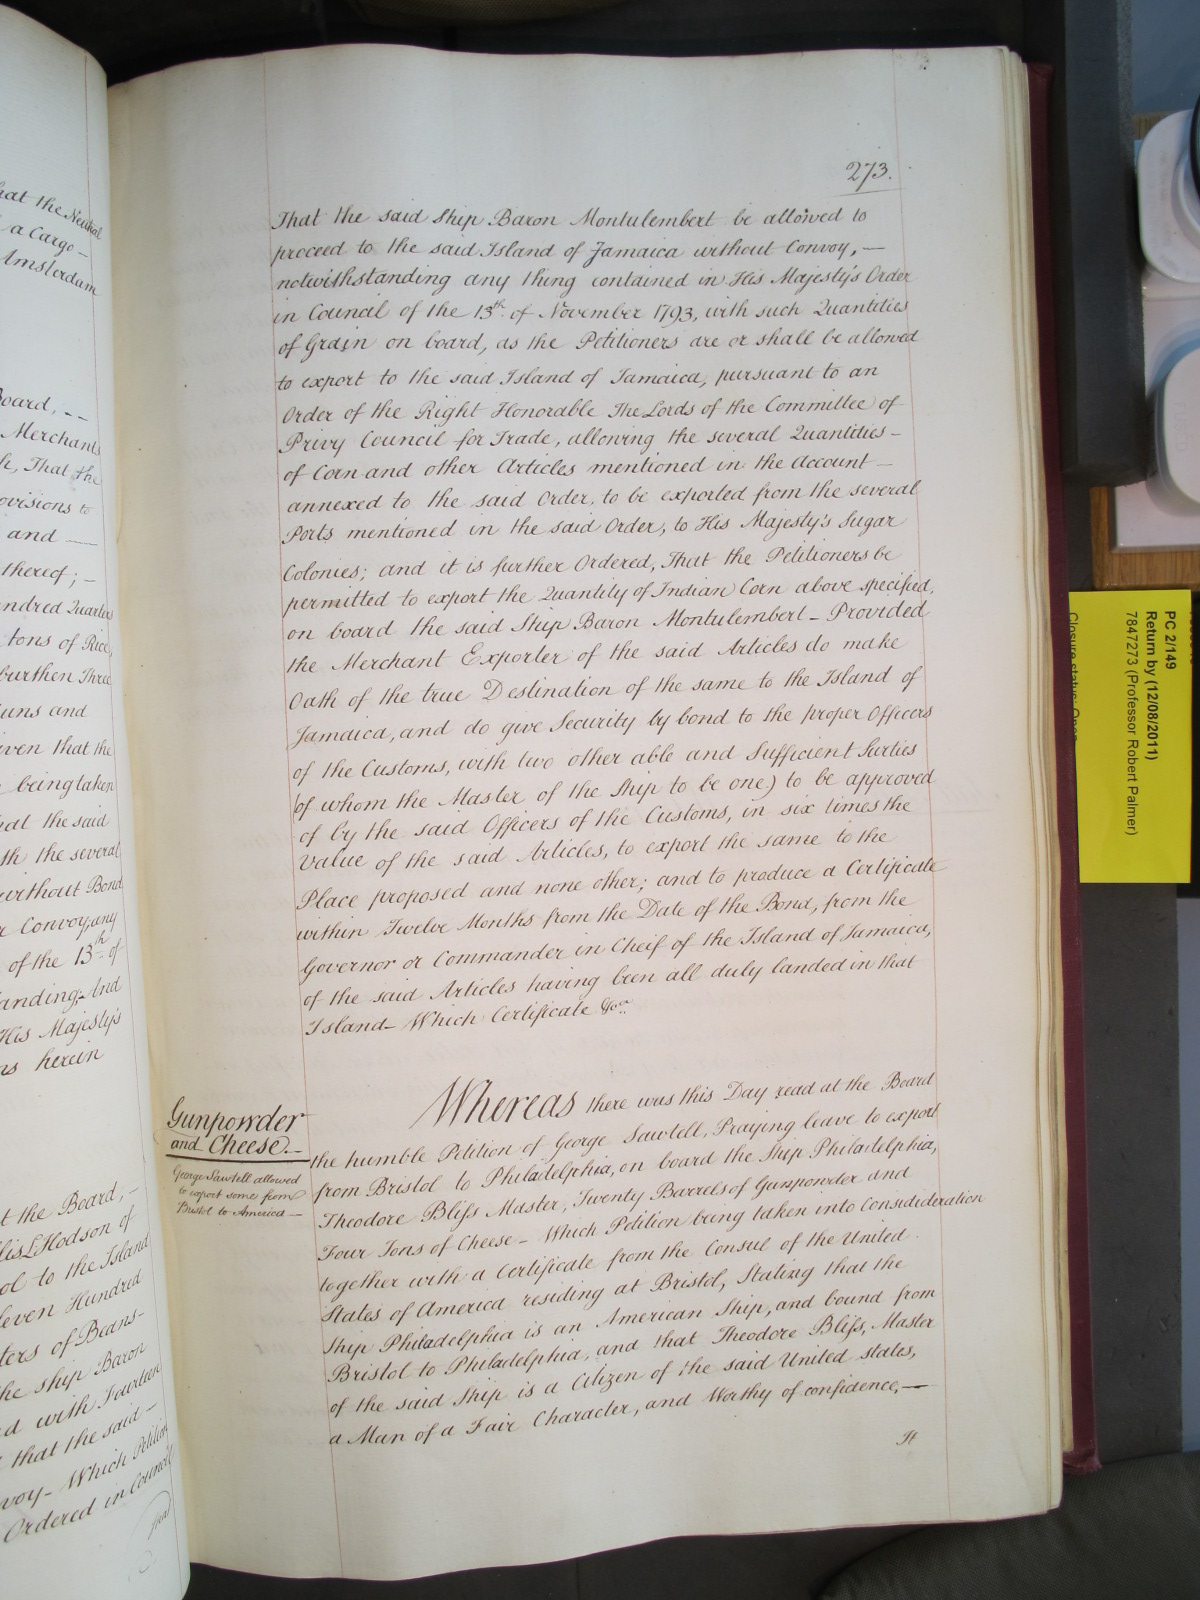 hat the Neutral
a Cargo —
Amsterdam
Board, --
Merchants
h, That the
ovisions to
and —
thereof; —
undred Quarters
tons of Rice,
burthen Three
uns and
iven that the
being taken
hat the said
th the several
without Bond
r Convoy, any
of the 13th of
tanding; And
His Majesty's
ns herein
t the Board, —
Hodson of
ol to the Island
leven Hundred
ters of Beans —
the ship Baron
d with Fourteen
that the said —
voy — Which Petition
Ordered in Council
273.
That the said Ship Baron Montulembert be allowed to
proceed to the said Island of Jamaica without Convoy, —
notwithstanding any thing contained in His Majesty's Order
in Council of the 13th. of November 1793, with such Quantities
of Grain on board, as the Petitioners are or shall be allowed
to export to the said Island of Jamaica, pursuant to an
Order of the Right Honorable The Lords of the Committee of
Privy Council for Trade, allowing the several Quantities —
of Corn and other Articles mentioned in the Account —
annexed to the said Order, to be exported from the several
Ports mentioned in the said Order, to His Majesty's Sugar
Colonies; and it is further Ordered, That the Petitioners be
permitted to export the Quantity of Indian Corn above specified,
on board the said Ship Baron Montulembert — Provided
the Merchant Exporter of the said Articles do make
Oath of the true Destination of the same to the Island of
Jamaica, and do give Security by bond to the proper Officers
of the Customs, with two other able and Sufficient Surties
(of whom the Master of the Ship to be one) to be approved
of by the said Officers of the Customs, in six times the
value of the said Articles, to export the same to the
Place proposed and none other; and to produce a Certificate
within Twelve Months from the Date of the Bond, from the
Governor or Commander in Cheif of the Island of Jamaica,
of the said Articles having been all duly landed in that
Island — Which Certificate &ca.
Gunpowder
and Cheese. —
George Sawtell allowed
to export some from
Bristol to America —
Whereas there was this Day read at the Board
the humble Petition of George Sawtell, Praying leave to export
from Bristol to Philadelphia, on board the Ship Philadelphia,
Theodore Bliſs Master, Twenty Barrels of Gunpowder and
Four Tons of Cheese — Which Petition being taken into Consideration
together with a Certificate from the Consul of the United
States of America residing at Bristol, Stating that the
Ship Philadelphia is an American Ship, and bound from
Bristol to Philadelphia, and that Theodore Bliſs, Master
of the said Ship is a Citizen of the said United States,
a Man of a Fair Character, and Worthy of confidence, —
It
PC 2/149
Return by (12/08/2011)
7847273 (Professor Robert Palmer)
Closure status: Open